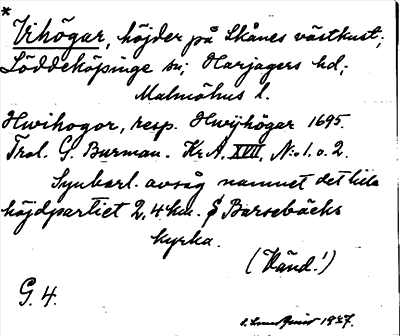 *
Vihögar, höjder på Skånes västkust;
Löddeköpinge sn; Harjagers hd;
Malmöhus l.
Hwihogor, resp. Hwijhögar 1695.
Trol. G. Burman. Kr.A. XVII, N:o 1. o. 2.
Synbarl. avsåg namnet det hela
höjdpartiet 2,4 km. S Barsebäcks
kyrka.
(Vänd!)
G. 4.
1927.